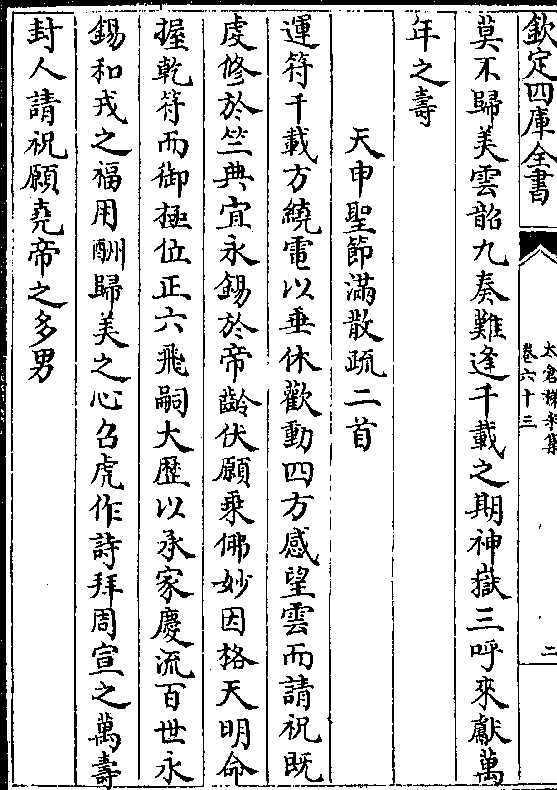 欽定四庫全書
太倉稊米集
卷六十三
二
莫不歸美雲韶九奏難逢千載之期神嶽三呼來獻萬
年之壽
天申聖節滿散疏二首
運符千載方繞電以垂休歡動四方感望雲而請祝既
虔修於竺典宜永錫於帝齡伏願乘佛妙因格天明命
握乾符而御極位正六飛嗣大歴以承家慶流百世永
錫和戎之福用酬歸美之心召虎作詩拜周宣之萬壽
封人請祝願堯帝之多男